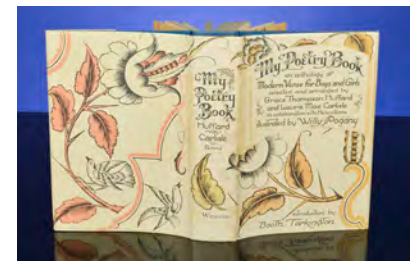 My
Poetry
Book
Huffard
and
Carlisle
Winston
My Poetry Book
an anthology of
Modern Verse for Boys and Girls
selected and arranged by
Grace Thompson Huffard
and Laura Mae Carlisle
in collaboration with Helen Ferris
illustrated by Willy Pogany
introduction by
Booth Tarkington